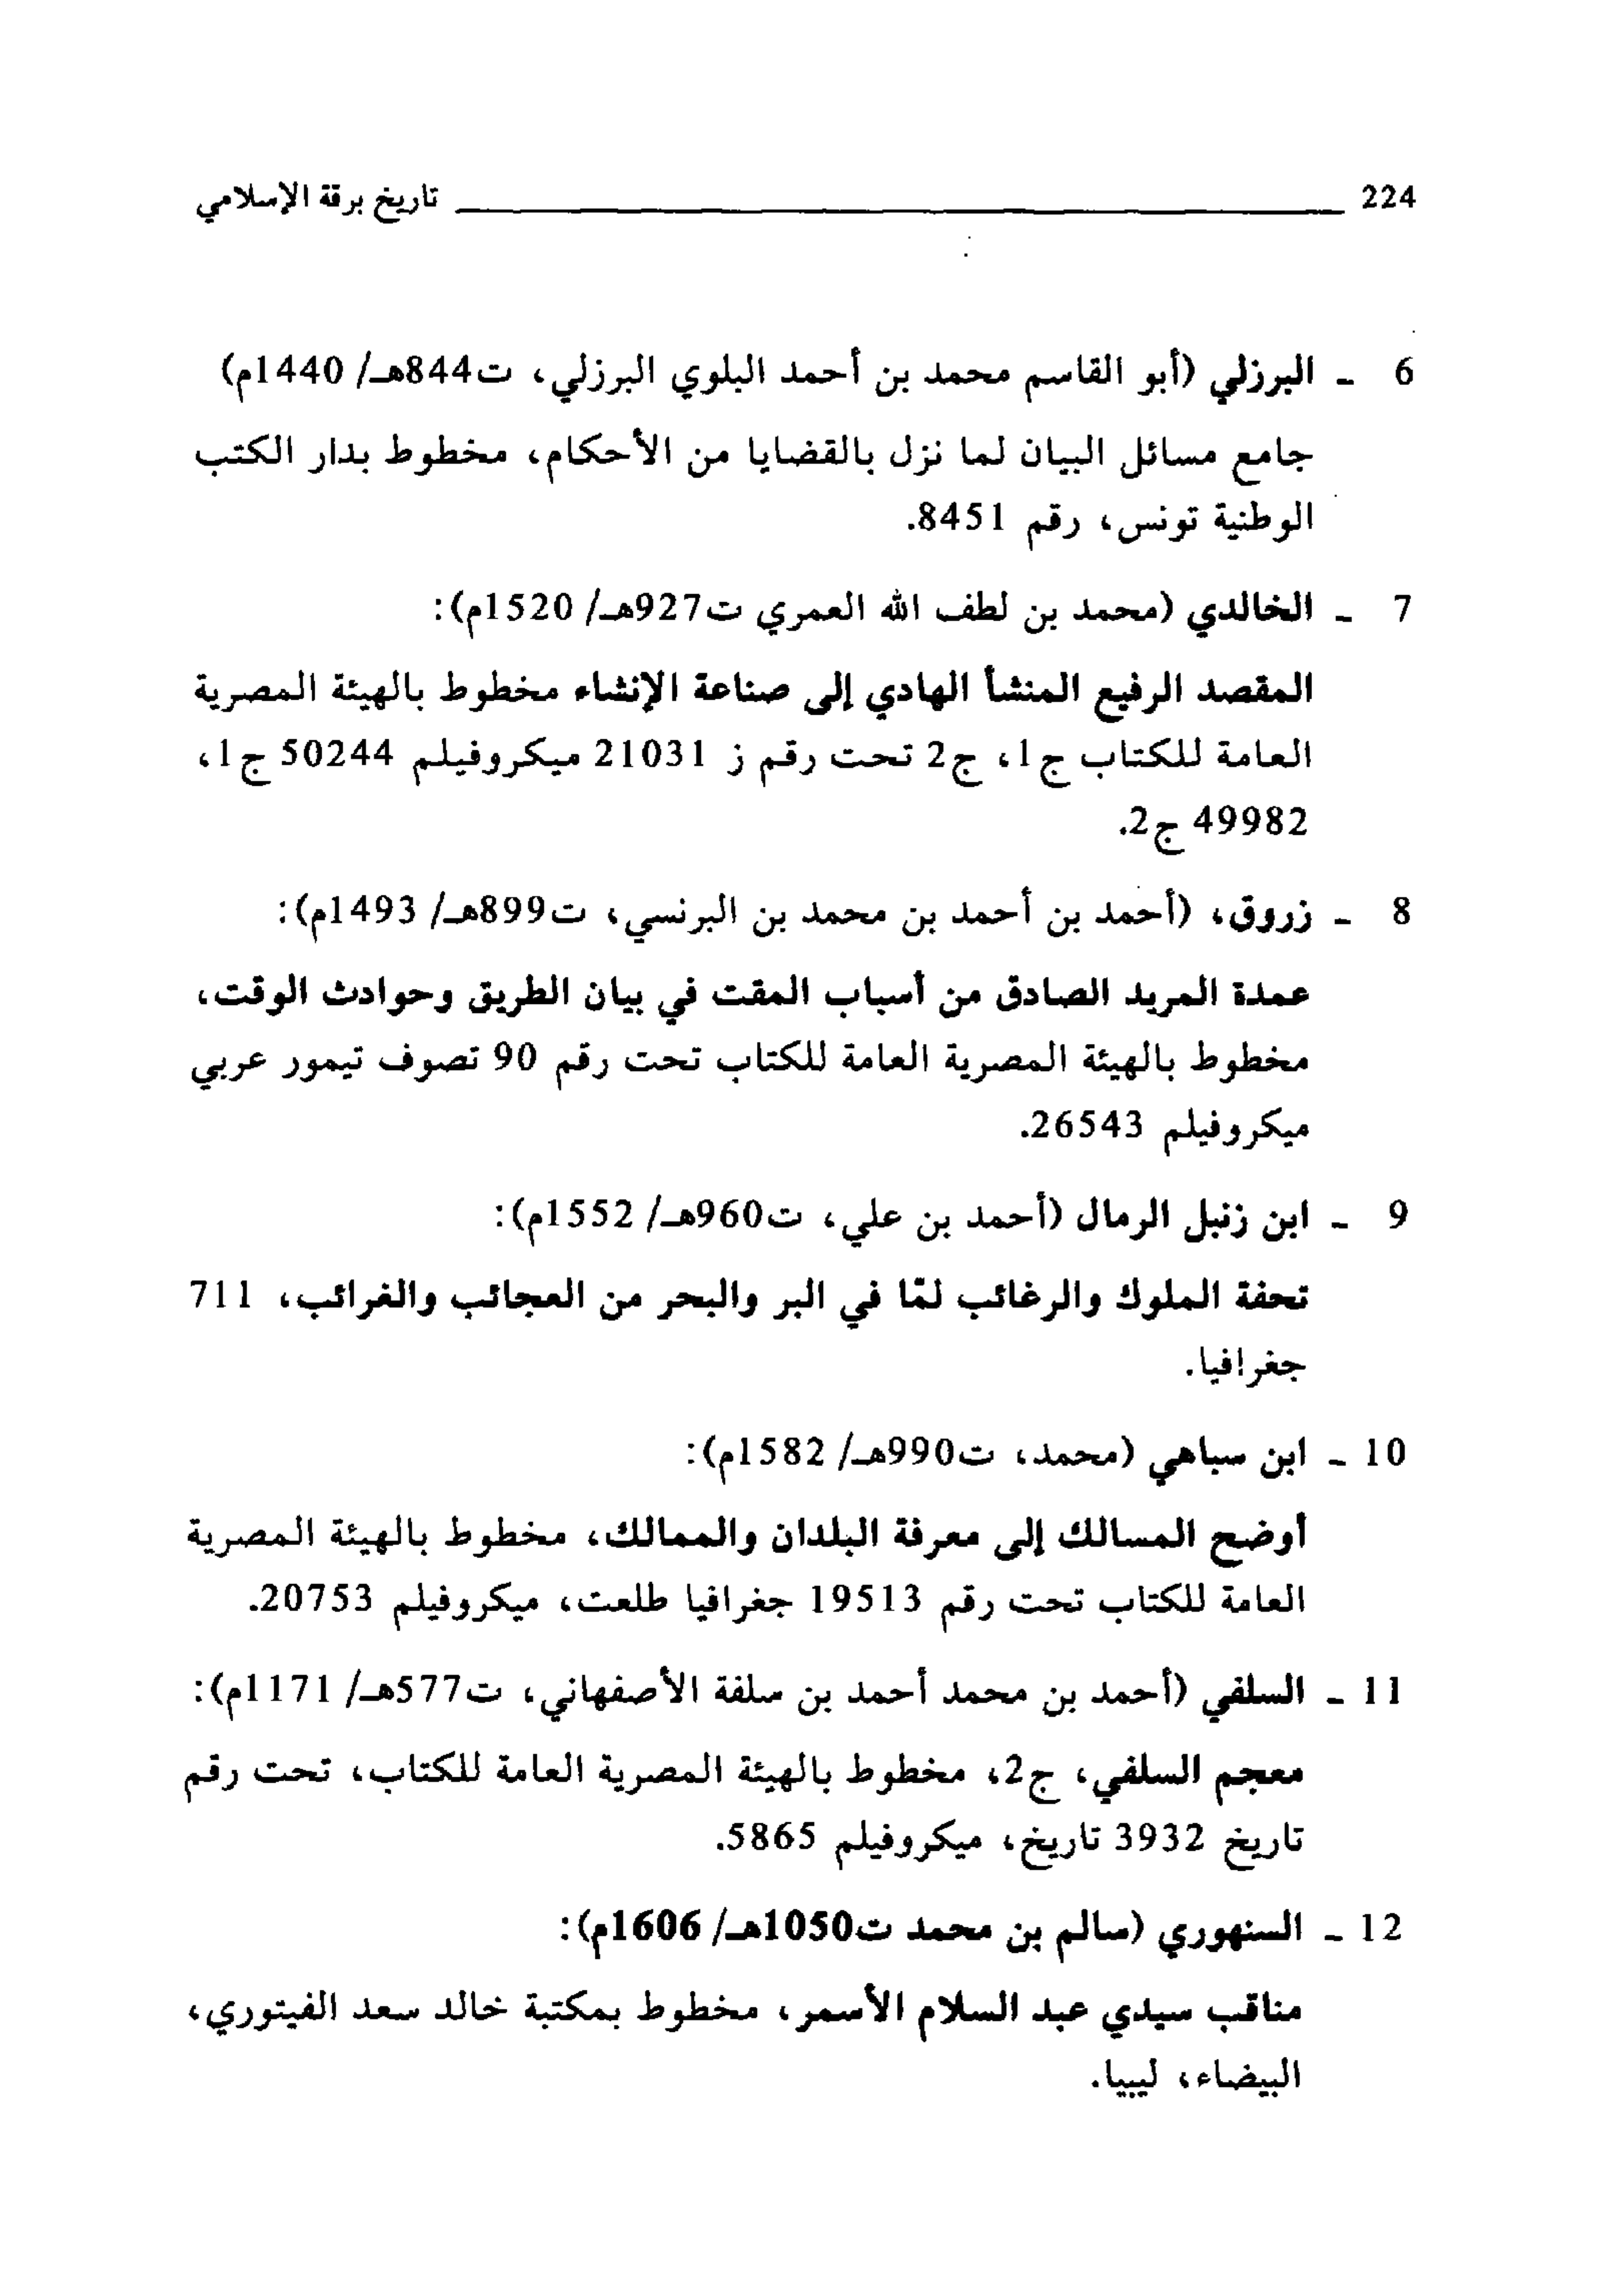 224 تاريخ برقة الإسلامي
6 - البرزلي (أبو القاسم محمد بن أحمد البلوي البرزلي، ت844هـ/ 1440م)
جامع مسائل البيان لما نزل بالقضايا من الأحكام، مخطوط بدار الكتب
الوطنية تونس، رقم 8451.
7 - الخالدي (محمد بن لطف الله العمري ت927هـ/ 1520م):
المقصد الرفيع المنشأ الهادي إلى صناعة الإنشاء مخطوط بالهيئة المصرية
العامة للكتاب ج1، ج2 تحت رقم ز 21031 ميكروفيلم 50244 ج1،
49982 ج2.
8 - زروق، (أحمد بن أحمد بن محمد بن البرنسي، ت899هـ/ 1493م):
عمدة المريد الصادق من أسباب المقت في بيان الطريق وحوادث الوقت،
مخطوط بالهيئة المصرية العامة للكتاب تحت رقم 90 تصوف تيمور عربي
ميكروفيلم 26543.
9 - ابن زنبل الرمال (أحمد بن علي، ت960هـ/ 1552م):
تحفة الملوك والرغائب لمّا في البر والبحر من العجائب والغرائب، 711
جغرافيا.
10 - ابن سباهي (محمد، ت990هـ/ 1582م):
أوضح المسالك إلى معرفة البلدان والممالك، مخطوط بالهيئة المصرية
العامة للكتاب تحت رقم 19513 جغرافيا طلعت، ميكروفيلم 20753.
11 - السلفي (أحمد بن محمد أحمد بن سلفة الأصفهاني، ت577هـ/ 1171م):
معجم السلفي، ج2، مخطوط بالهيئة المصرية العامة للكتاب، تحت رقم
تاريخ 3932 تاريخ، ميكروفيلم 5865.
12 - السنهوري (سالم بن محمد ت1050هـ/ 1606م):
مناقب سيدي عبد السلام الأسمر، مخطوط بمكتبة خالد سعد الفيتوري،
البيضاء، ليبيا.